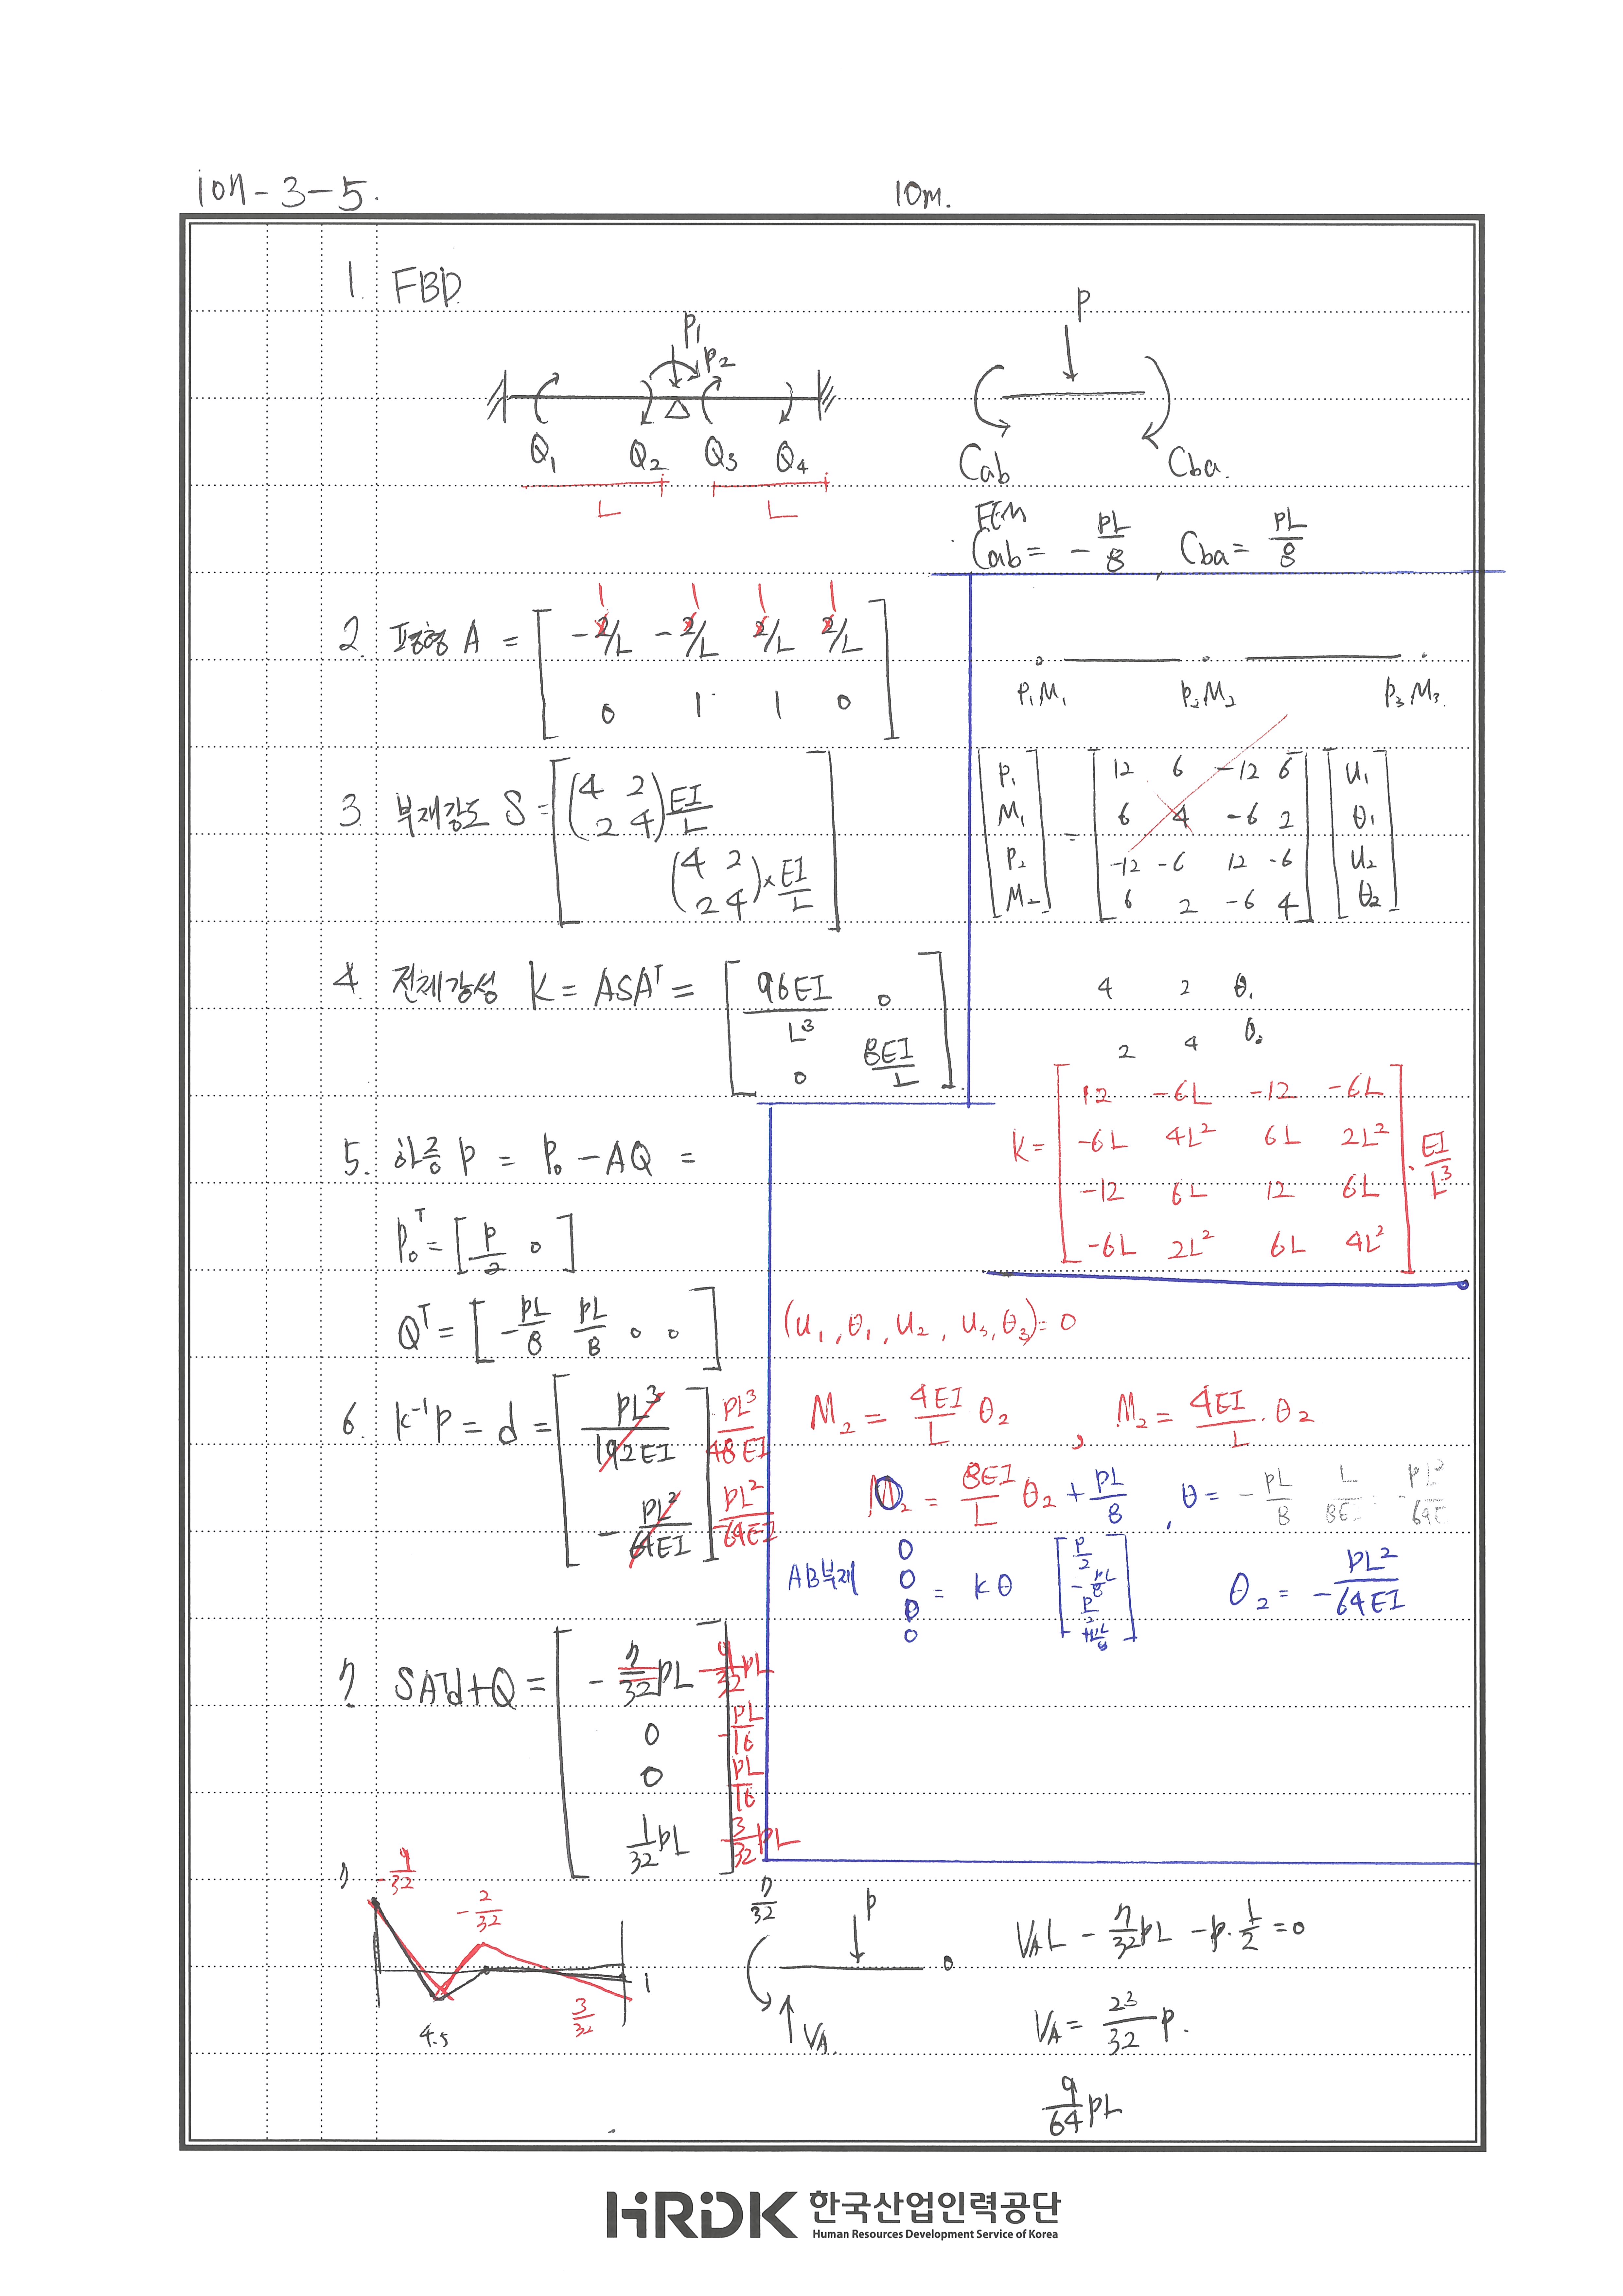 107-3-5. 10m.
1. FBD
P₁ P₂
Q₁ Q₂ Q₃ Q₄
L L
P
Cab Cba.
FEM
Cab = - PL/8, Cba = PL/8
2. 평형 A = [ -2/L -2/L 2/L 2/L
1 1 1 1
0 1 1 0 ]
P₁M₁ P₂M₂ P₃M₃.
3. 부재강도 S = [ (4 2
2 4) EI/L
(4 2
2 4) × EI/L ]
[ P₁ M₁ P₂ M₂ ] = [ 12 6 -12 6
6 4 -6 2
-12 -6 12 -6
6 2 -6 4 ] [ u₁ θ₁ u₂ θ₂ ]
4. 전체강성 K = ASAᵀ = [ 96EI/L³ 0
0 8EI/L ]
4 2 θ₁
2 4 θ₂
K = [ 12 -6L -12 -6L
-6L 4L² 6L 2L²
-12 6L 12 6L
-6L 2L² 6L 4L² ] · EI/L³
5. 하중 P = P₀ - AQ =
P₀ᵀ = [ P/2 0 ]
Qᵀ = [ -PL/8 PL/8 0 0 ]
(u₁, θ₁, u₂, u₃, θ₃) = 0
6. K⁻¹P = d = [ PL³/192EI
-PL²/64EI ]
PL³/48EI
-PL²/64EI
M₂ = 4EI/L θ₂, M₂ = 4EI/L · θ₂
0 = 8EI/L θ₂ + PL/8, θ = - PL/8 L/8E PL²/64E
AB부재 0 0 0 0 = Kθ [ P/2 -PL/8 P/2 +PL/8 ] θ₂ = PL²/-64EI
7. SAᵀd+Q = [ -7/32 PL
0
0
1/32 PL ]
-9/32 PL
-PL/16
PL/16
3/32 PL
-9/32 -2/32 3/32
4.5 1
7/32 P 0
VA
VA L - 7/32 PL - P · L/2 = 0
VA = 23/32 P.
9/64 PL
HRDK 한국산업인력공단
Human Resources Development Service of Korea